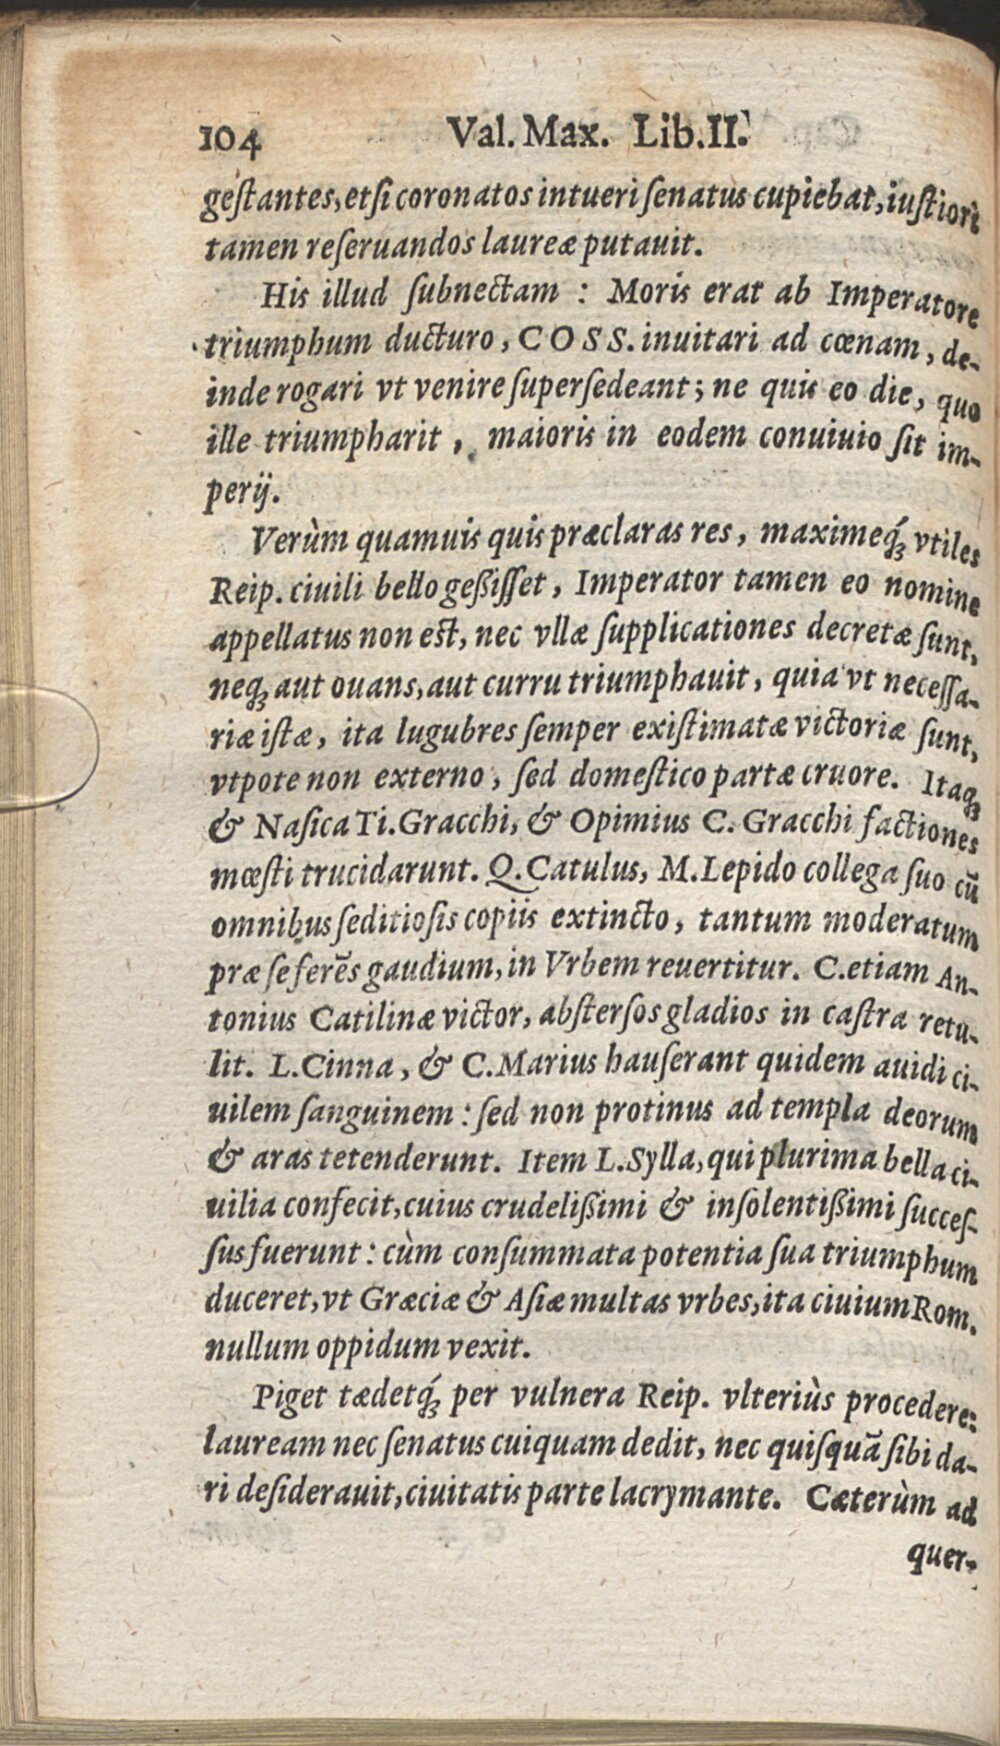 104 Val. Max. Lib. II.
geſtantes, etſi coronatos intueri ſenatus cupiebat, iuſtiori
tamen reſeruandos laureæ putauit.
His illud ſubnectam : Moris erat ab Imperatore
triumphum ducturo, COSS. inuitari ad cœnam, de-
inde rogari vt venire ſuperſedeant ; ne quis eo die, quo
ille triumpharit, maioris in eodem conuiuio ſit im-
perij.
Verùm quamuis quis præclaras res, maximeq́ꝫ vtiles
Reip. ciuili bello geßiſſet, Imperator tamen eo nomine
appellatus non eſt, nec vllæ ſupplicationes decretæ ſunt,
neqꝫ aut ouans, aut curru triumphauit, quia vt neceſſa-
riæ iſtæ, ita lugubres ſemper exiſtimatæ victoriæ ſunt,
vtpote non externo, ſed domeſtico partæ cruore. Itaqꝫ
& Naſica Ti. Gracchi, & Opimius C. Gracchi factiones
mœſti trucidarunt. Q. Catulus, M. Lepido collega ſuo cū
omnibus ſeditioſis copiis extincto, tantum moderatum
præ ſe ferēs gaudium, in Vrbem reuertitur. C. etiam An-
tonius Catilinæ victor, abſterſos gladios in caſtra retu-
lit. L. Cinna, & C. Marius hauſerant quidem auidi ci-
uilem ſanguinem : ſed non protinus ad templa deorum
& aras tetenderunt. Item L. Sylla, qui plurima bella ci-
uilia confecit, cuius crudelißimi & inſolentißimi ſucceſ-
ſus fuerunt : cùm conſummata potentia ſua triumphum
duceret, vt Græciæ & Aſiæ multas vrbes, ita ciuium Rom.
nullum oppidum vexit.
Piget tædetq́ꝫ per vulnera Reip. vlteriùs procedere:
lauream nec ſenatus cuiquam dedit, nec quiſquā ſibi da-
ri deſiderauit, ciuitatis parte lacrymante. Cæterùm ad
quer-